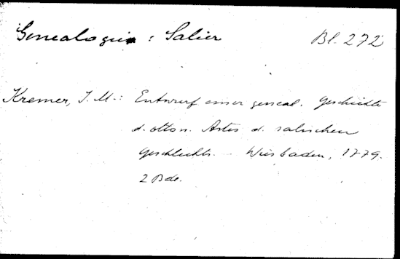 Genealogie : Salier Bl. 272
Kremer, J. M.: Entwurf einer geneal. Geschichte
d. otton. Astes d. salischen
Geschlechts. - Wiesbaden, 1779.
2 Bde.